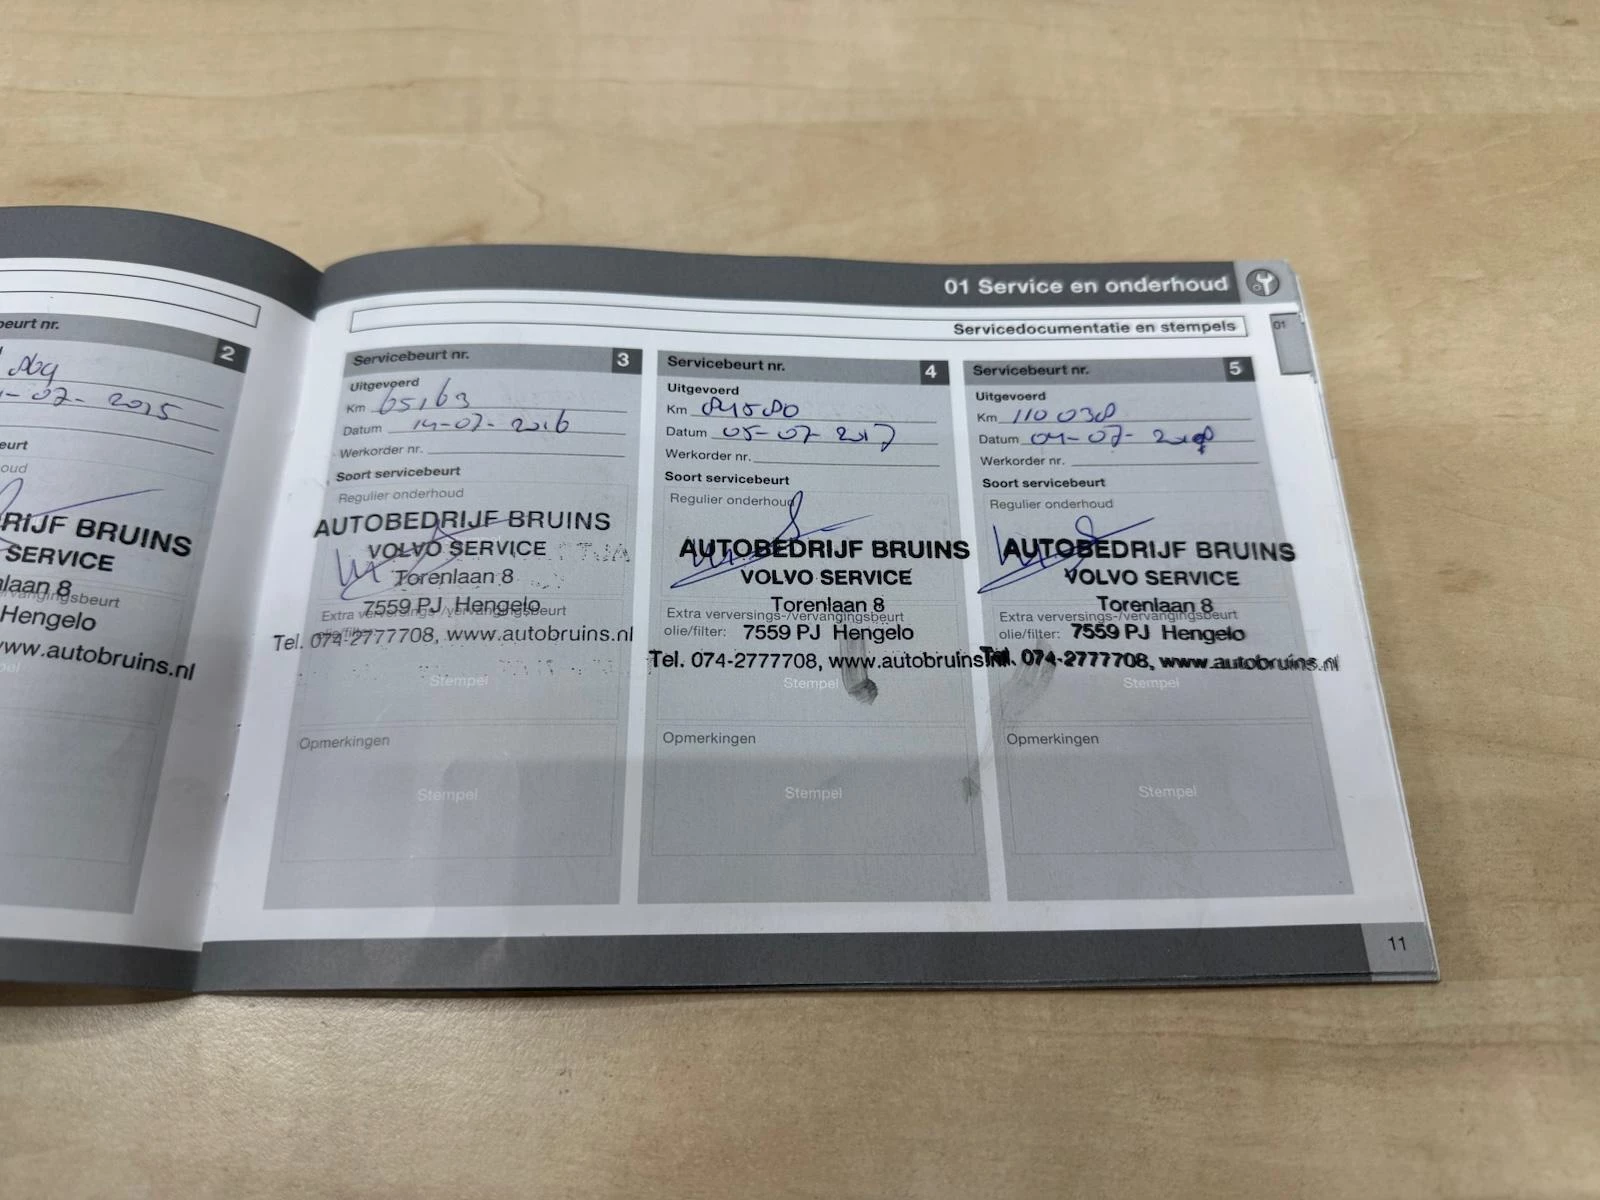 01 Service en onderhoud
01
Servicedocumentatie en stempels
beurt nr.
2
-07- 2015
beurt
oud
RIJF BRUINS
SERVICE
nlaan 8
vervangingsbeurt
Hengelo
www.autobruins.nl
Servicebeurt nr.
3
Uitgevoerd
Km 65163
Datum 14-07-2016
Werkorder nr.
Soort servicebeurt
Regulier onderhoud
AUTOBEDRIJF BRUINS
VOLVO SERVICE
Torenlaan 8
7559 PJ Hengelo
Extra verversings-/vervangingsbeurt
Tel. 074-2777708, www.autobruins.nl
Stempel
Opmerkingen
Stempel
Servicebeurt nr.
4
Uitgevoerd
Km 84580
Datum 05-07-2017
Werkorder nr.
Soort servicebeurt
Regulier onderhoud
AUTOBEDRIJF BRUINS
VOLVO SERVICE
Torenlaan 8
Extra verversings-/vervangingsbeurt
olie/filter: 7559 PJ Hengelo
Tel. 074-2777708, www.autobruins.nl
Stempel
Opmerkingen
Stempel
Servicebeurt nr.
5
Uitgevoerd
Km 110 038
Datum 04-07-2018
Werkorder nr.
Soort servicebeurt
Regulier onderhoud
AUTOBEDRIJF BRUINS
VOLVO SERVICE
Torenlaan 8
Extra verversings-/vervangingsbeurt
olie/filter: 7559 PJ Hengelo
Tel. 074-2777708, www.autobruins.nl
Stempel
Opmerkingen
Stempel
11